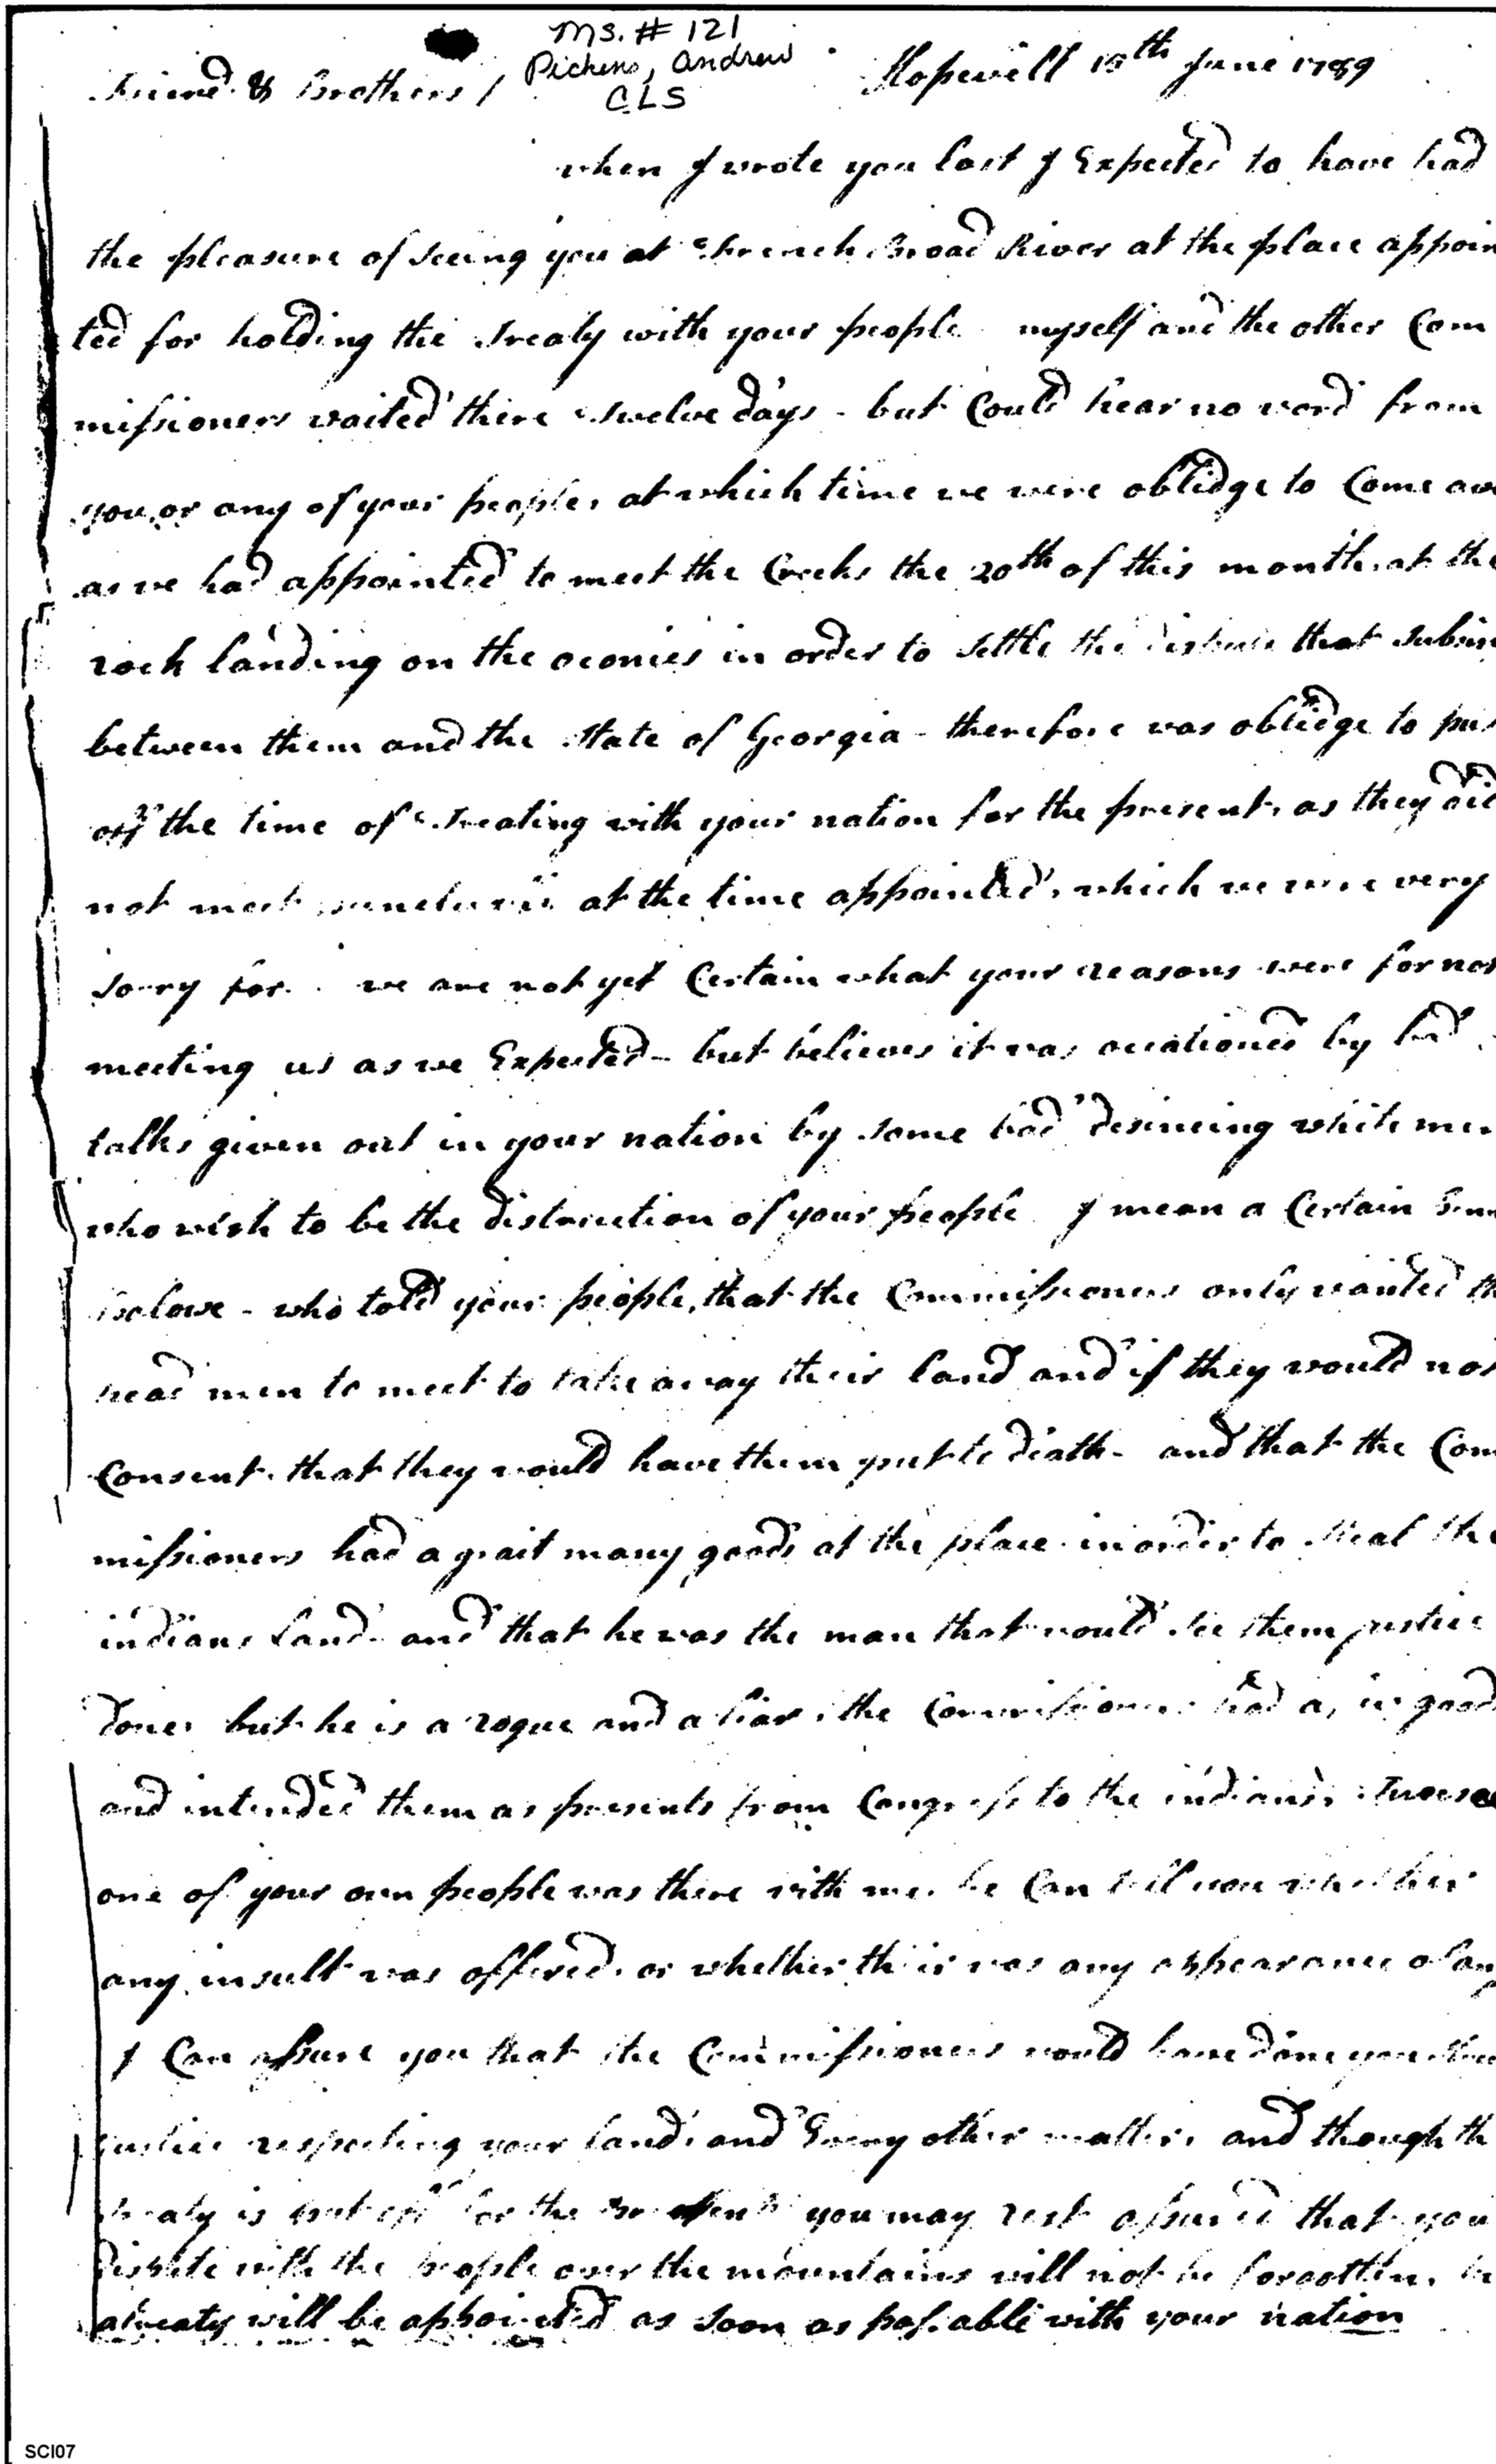 Ms. # 121
Pickens, Andrew
CLS
Hopewell 15th June 1789
Friend & Brothers /
when I wrote you last I Expected to have had
the pleasure of seeing you at French Broad River at the place appoin
ted for holding the treaty with your people myself and the other Com
missioners waited there twelve days - but Could hear no word from
you, or any of your people, at which time we were oblidge to Come aw
as we had appointed to meet the Creeks the 20th of this month, at the
rock landing on the oconies in order to settle the dispute that subsis
between them and the State of Georgia - therefore was oblidge to pu
off the time of Treating with your nation for the present, as they did
not meet at the time appointed, which we were very
sorry for. we are not yet Certain what your reasons were for not
meeting us as we Expected - but believes it was occationed by bad
talks given out in your nation by some bad desineing white men
who wish to be the distruction of your people I mean a Certain
who told your people, that the Commissioners only wanted th
head men to meet to take away their land and if they would not
Consent, that they would have them put to death - and that the Com
missioners had a grait many goods at the place in order to steal the
indians land - and that he was the man that would see them justice
done, but he is a rogue and a liar, the Commissioners had a, goods
and intended them as presents from Congress to the indians,
one of your own people was there with me. he Can tell you whether
any insult was offered, or whether their was any appearance of any
I Can assure you that the Commissioners would have done you
justice respecting your land, and Every other matter, and though th
treaty is put off for the present you may rest assured that you
dispute with the people over the mountains will not be forgotten,
a treaty will be appointed as soon as possable with your nation
SCI07